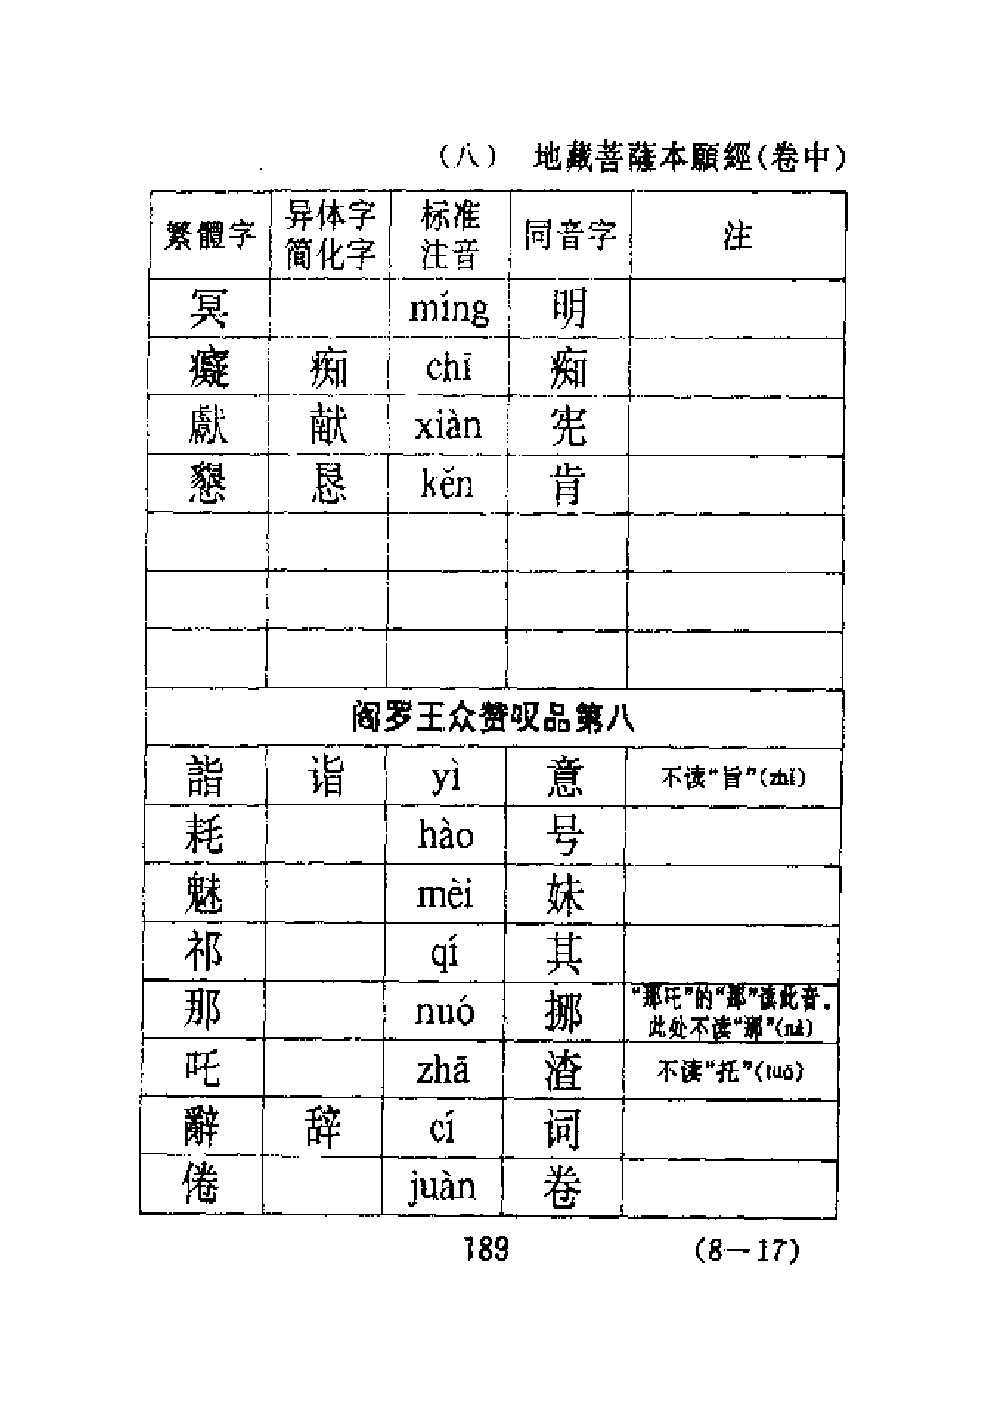 (八) 地藏菩薩本願經(卷中)
繁體字 异体字 简化字 标准注音 同音字 注
冥 míng 明
癡 痴 chī 痴
獻 献 xiàn 宪
懇 恳 kěn 肯
阎罗王众赞叹品第八
詣 诣 yì 意 不读“旨”(zhǐ)
耗 hào 号
魅 mèi 妹
祁 qí 其
那 nuó 挪 “那吒”的“那”读此音。此处不读“那”(nà)
吒 zhā 渣 不读“托”(tuō)
辭 辞 cí 词
倦 juàn 卷
189 (8—17)